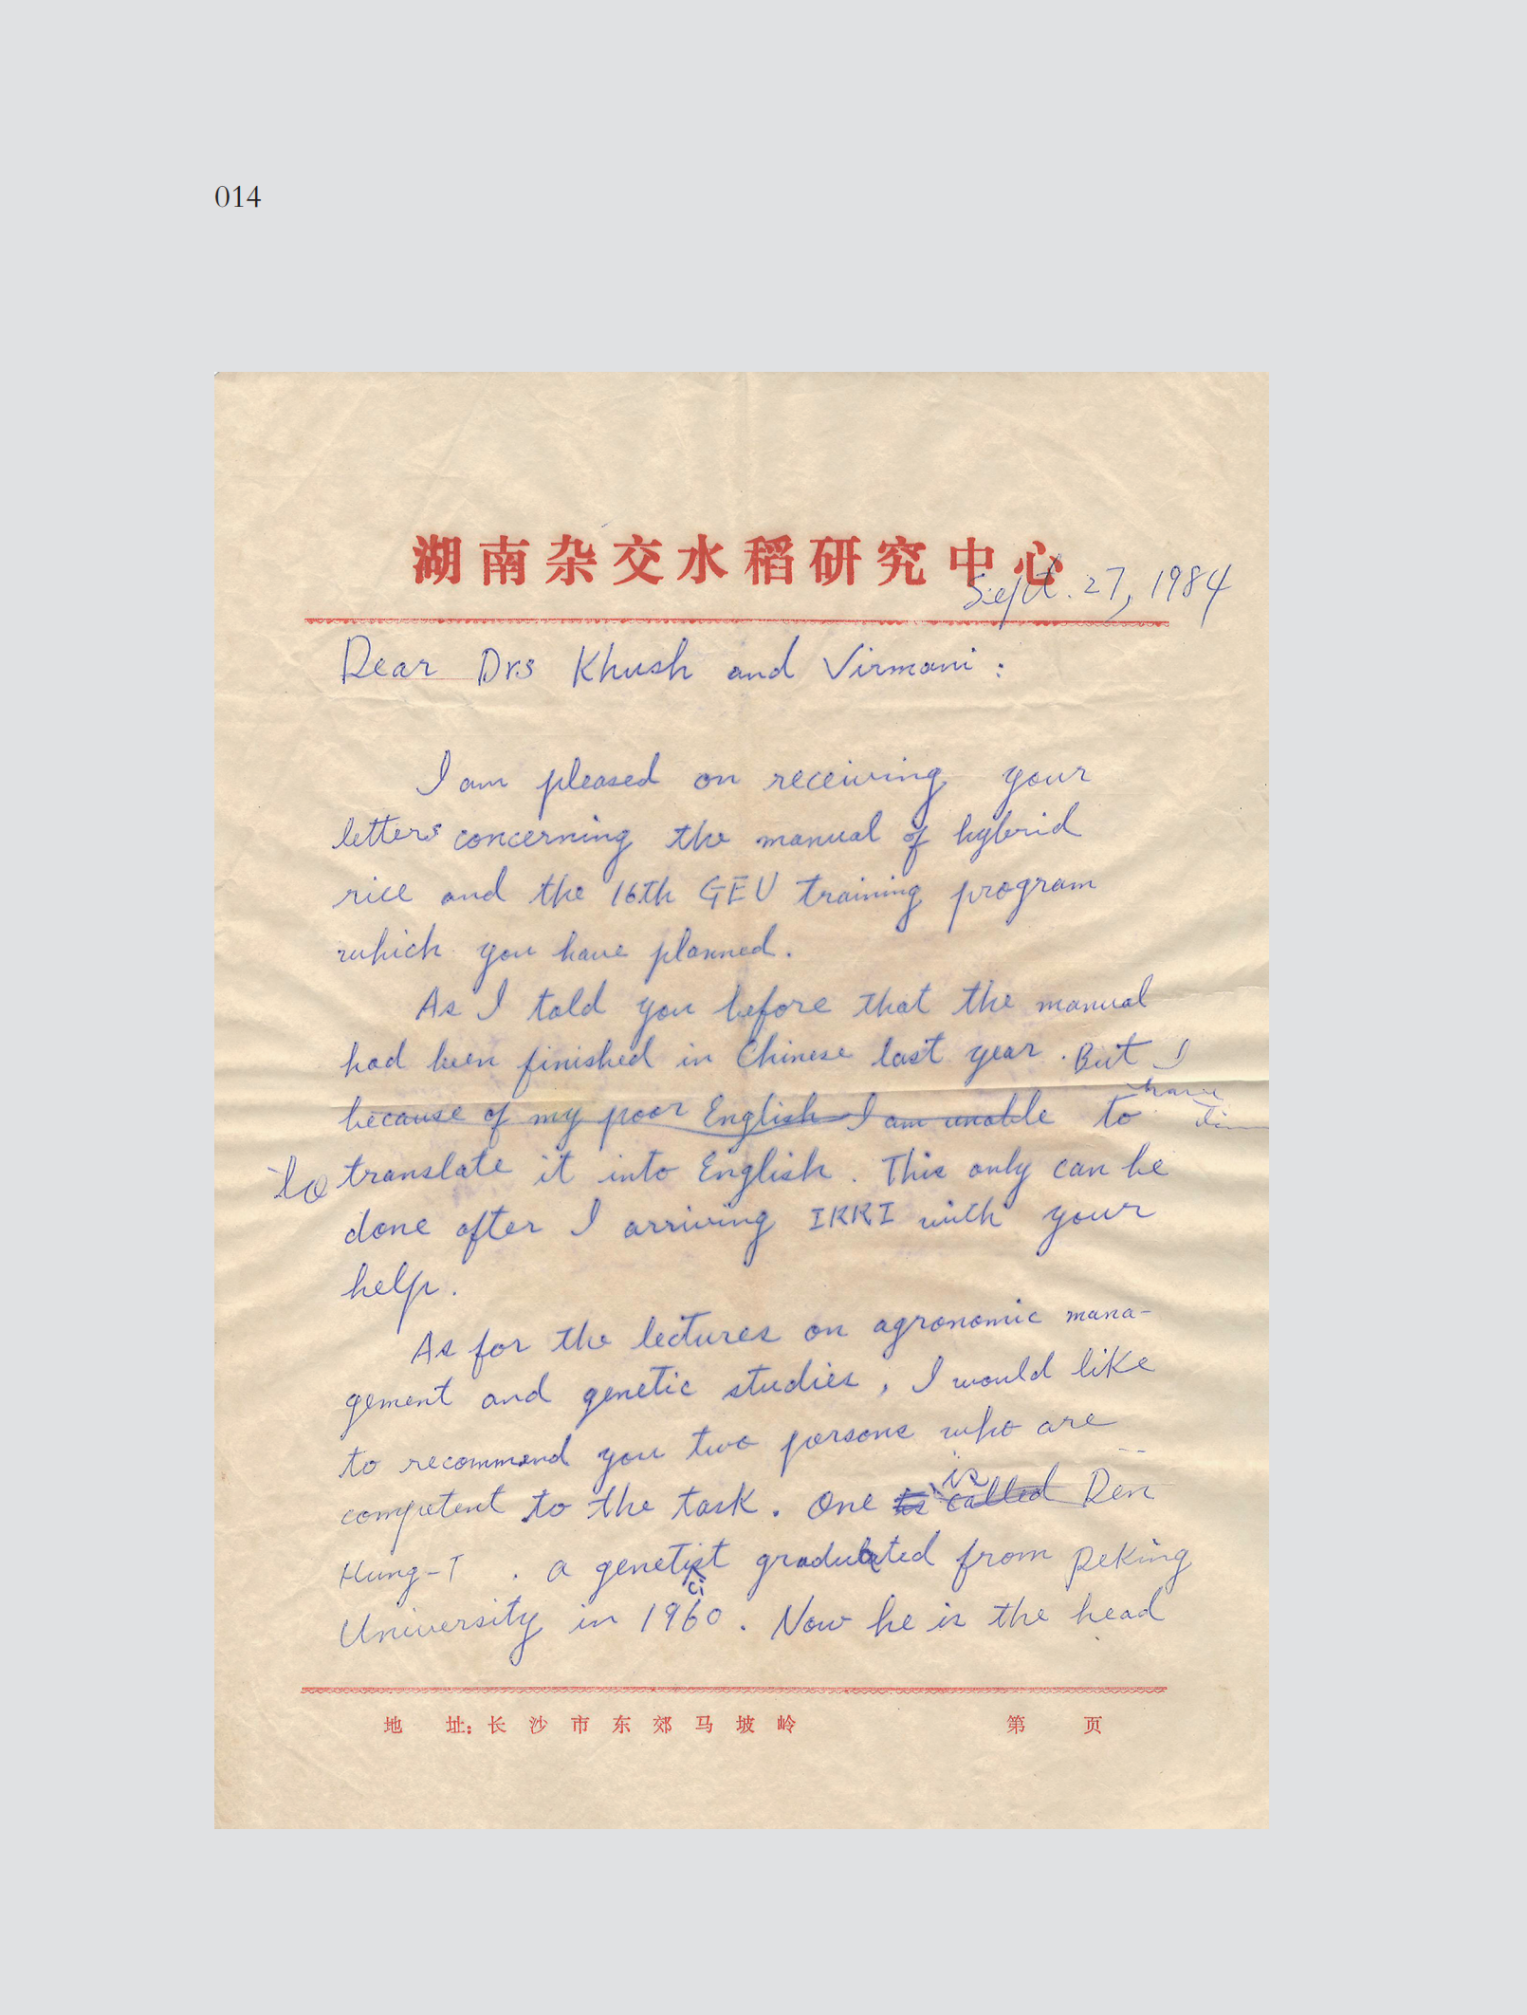 014
湖南杂交水稻研究中心
Sept. 27, 1984
Dear Drs Khush and Virmani:
I am pleased on receiving your
letters concerning the manual of hybrid
rice and the 16th GEU training program
which you have planned.
As I told you before that the manual
had been finished in Chinese last year. But I
have
because of my poor English I am unable to
to translate it into English. This only can be
done after I arriving IRRI with your
help.
As for the lectures on agronomic mana-
gement and genetic studies, I would like
to recommend you two persons who are
is
competent to the task. One is called Den
Hung-T . a genetist graduated from peking
ci
University in 1960. Now he is the head
地 址:长沙市东郊马坡岭 第 页